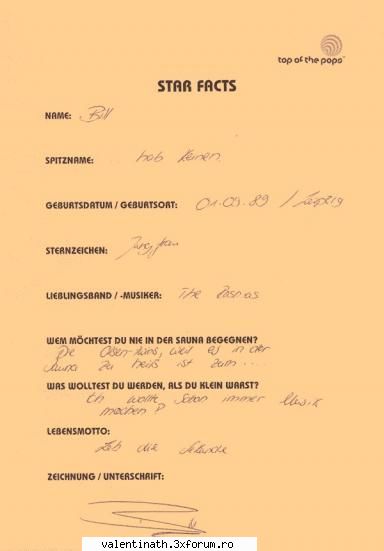 top of the pops
STAR FACTS
NAME: Bill
SPITZNAME: hab keinen
GEBURTSDATUM / GEBURTSORT: 01.09.89 / Leipzig
STERNZEICHEN: Jungfrau
LIEBLINGSBAND / -MUSIKER: The Rasmus
WEM MÖCHTEST DU NIE IN DER SAUNA BEGEGNEN?
Die Olsen-Twins, weil es in der
Sauna zu heiß ist zum ....
WAS WOLLTEST DU WERDEN, ALS DU KLEIN WARST?
Ich wollte schon immer Musik
machen!
LEBENSMOTTO:
Leb die Sekunde
ZEICHNUNG / UNTERSCHRIFT:
valentinath.3xforum.ro